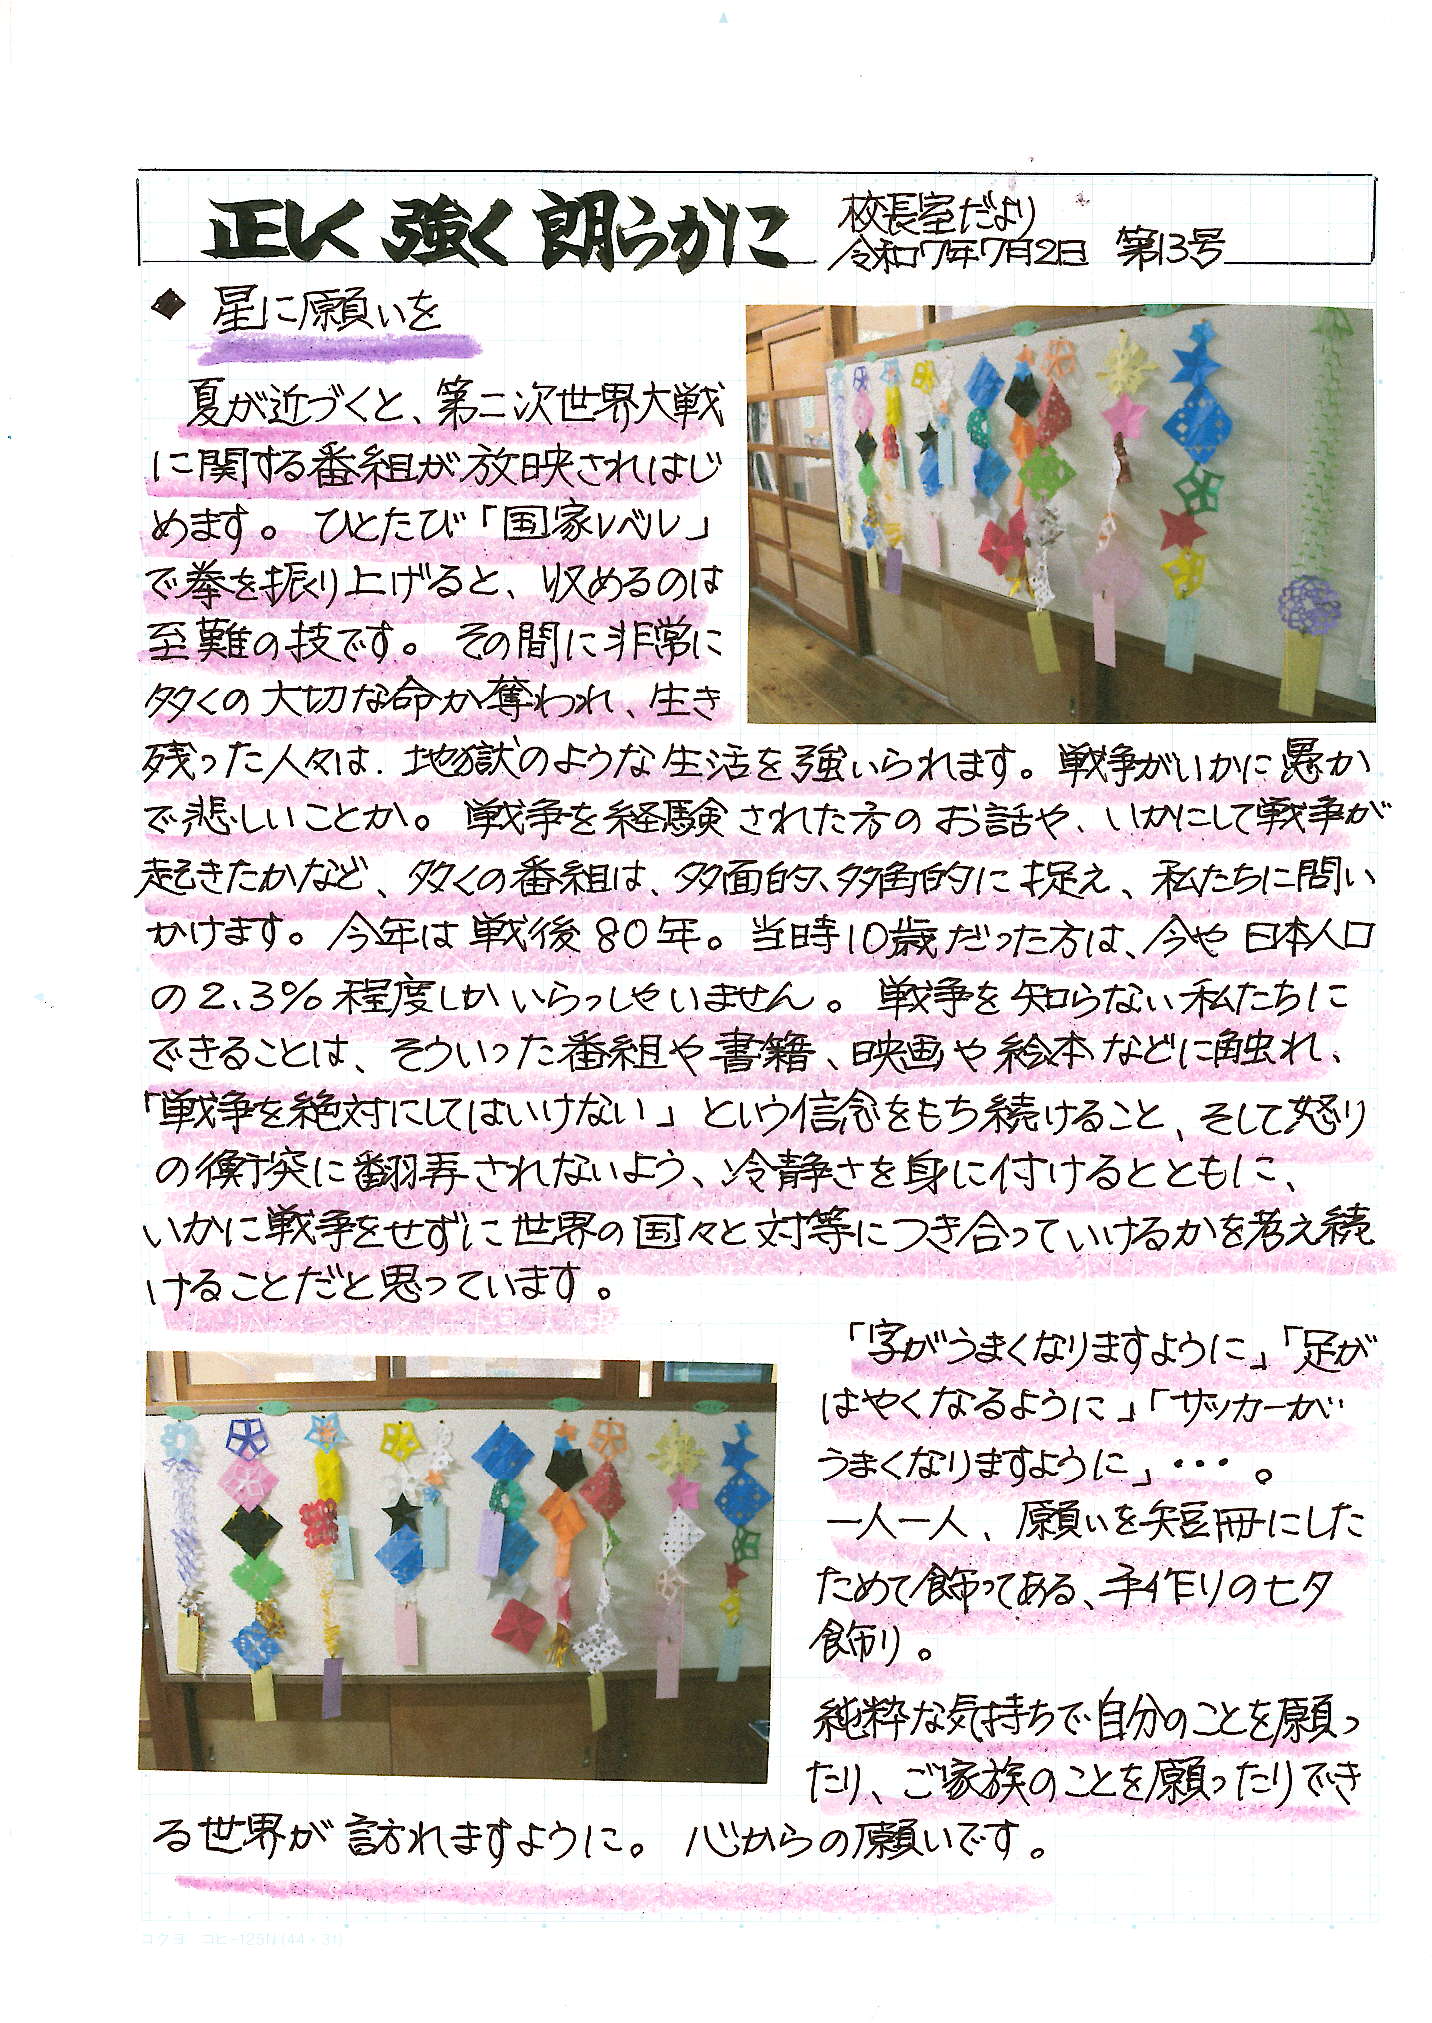 正しく 強く 朗らかに
校長室だより
令和7年7月2日 第13号
◆ 星に願いを
夏が近づくと、第二次世界大戦
に関する番組が放映されはじ
めます。ひとたび「国家レベル」
で拳を振り上げると、収めるのは
至難の技です。その間に非常に
多くの大切な命が奪われ、生き
残った人々は、地獄のような生活を強いられます。戦争がいかに愚か
で悲しいことか。戦争を経験された方のお話や、いかにして戦争が
起きたかなど、多くの番組は、多面的、多角的に捉え、私たちに問い
かけます。今年は戦後80年。当時10歳だった方は、今や日本人口
の2.3%程度しかいらっしゃいません。戦争を知らない私たちに
できることは、そういった番組や書籍、映画や絵本などに触れ、
「戦争を絶対にしてはいけない」という信念をもち続けること、そして怒り
の衝突に翻弄されないよう、冷静さを身に付けるとともに、
いかに戦争をせずに世界の国々と対等につき合っていけるかを考え続
けることだと思っています。
「字がうまくなりますように」「足が
はやくなるように」「サッカーが
うまくなりますように」・・・。
一人一人、願いを短冊にした
ためて飾ってある、手作りの七夕
飾り。
純粋な気持ちで自分のことを願っ
たり、ご家族のことを願ったりでき
る世界が訪れますように。心からの願いです。
コクヨ コヒ-125N(44×31)